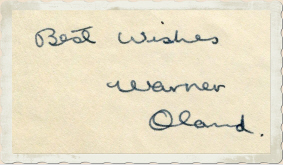 Best Wishes
Warner
Oland.